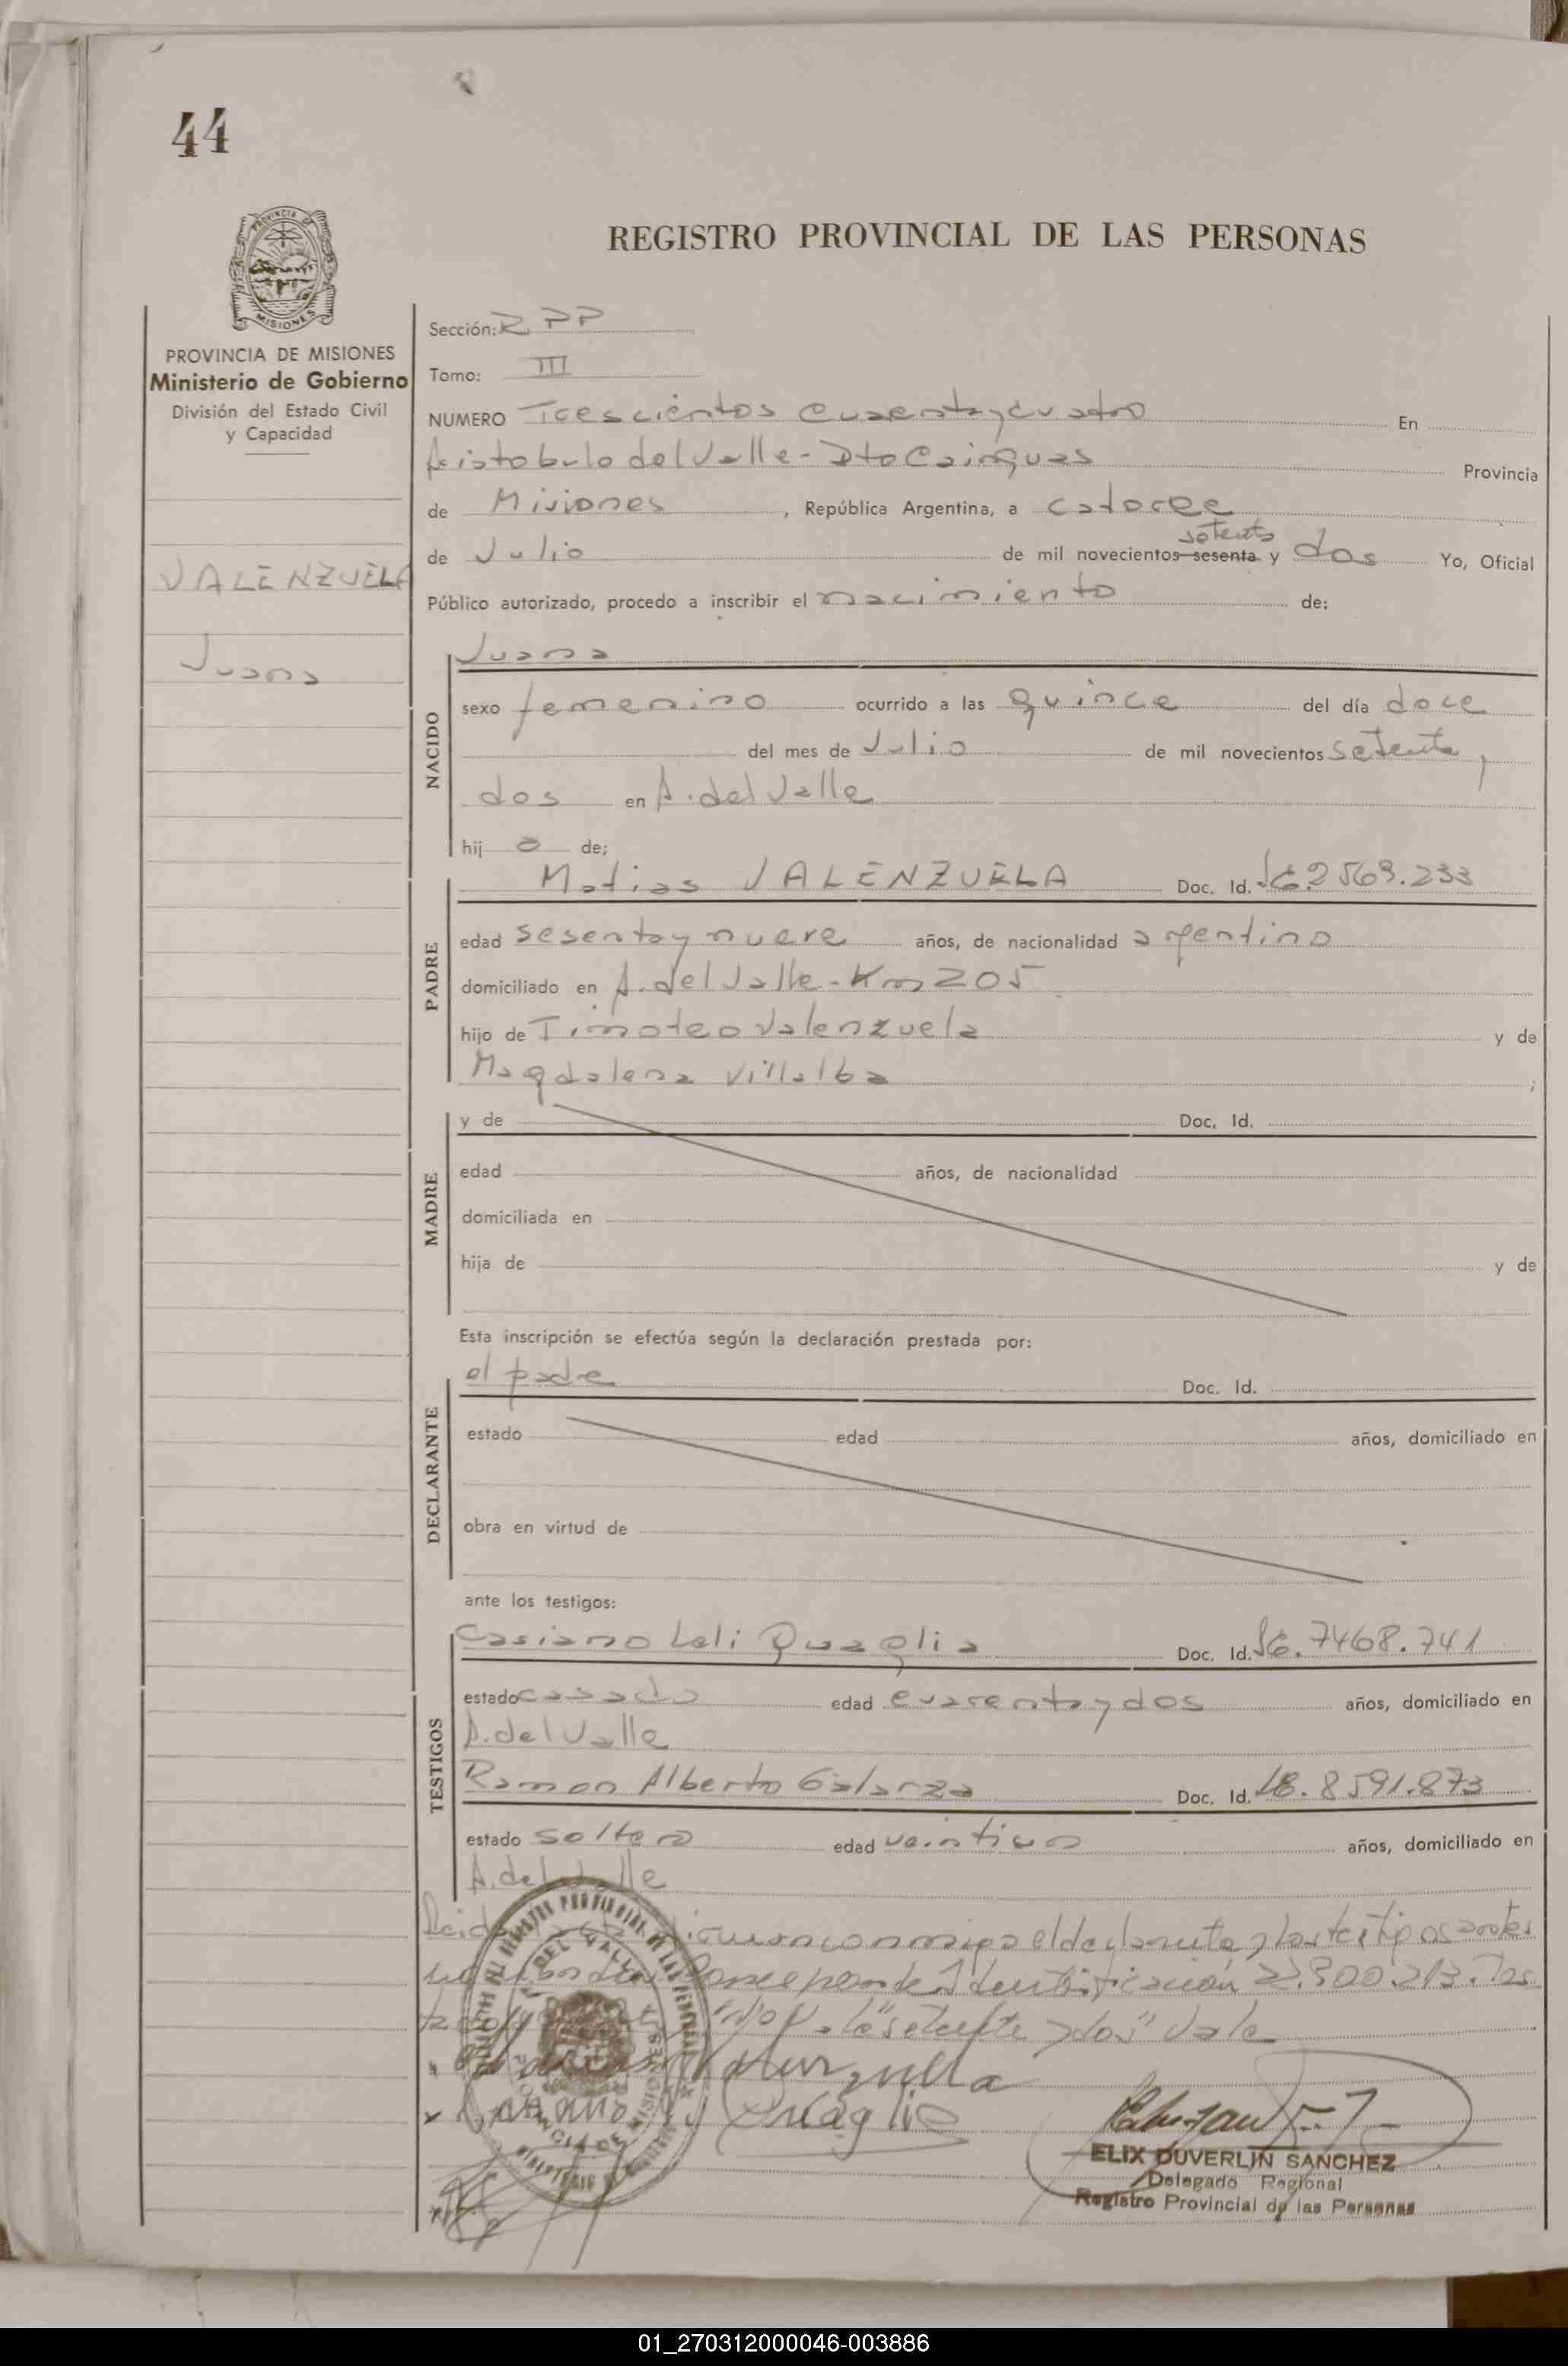 44
PROVINCIA DE
MISIONES
REGISTRO PROVINCIAL DE LAS PERSONAS
PROVINCIA DE MISIONES
Ministerio de Gobierno
División del Estado Civil
y Capacidad
VALENZUELA
Juana
Sección: RPP
Tomo: III
NUMERO Trescientos cuarenta y cuatro En
Aristobulo del Valle - Dto Cainguas Provincia
de Misiones, República Argentina, a catorce
setenta
de Julio de mil novecientos sesenta y dos Yo, Oficial
Público autorizado, procedo a inscribir el nacimiento de:
NACIDO
Juana
sexo femenino ocurrido a las quince del día doce
del mes de Julio de mil novecientos setenta y
dos en A. del Valle
hij a de;
PADRE
Matias VALENZUELA Doc. Id. 2569.233
edad sesenta y nueve años, de nacionalidad argentino
domiciliado en A. del Valle - Km 205
hijo de Timoteo Valenzuela y de
Magdalena Villalba ;
MADRE
y de Doc. Id.
edad años, de nacionalidad
domiciliada en
hija de y de
Esta inscripción se efectúa según la declaración prestada por:
DECLARANTE
el padre Doc. Id.
estado edad años, domiciliado en
obra en virtud de
ante los testigos:
TESTIGOS
Casiano Loli Quaglia Doc. Id. 7468.741
estado casado edad cuarenta y dos años, domiciliado en
A. del Valle
Ramon Alberto Galarza Doc. Id. 8591.873
estado soltero edad veintiun años, domiciliado en
A. del Valle
conmigo el declarante y los testigos
Identificación 22.900.213.
"setenta y dos" Vale
Quaglia
ELIX DUVERLIN SANCHEZ
Delegado Regional
Registro Provincial de las Personas
01_270312000046-003886